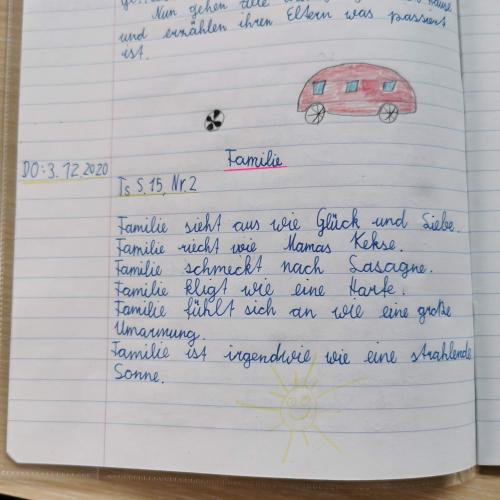 Nun gehen alle
und erzählen ihren Eltern was passiert
ist.
Familie
DO: 3.12.2020
Ts S.15, Nr.2
Familie sieht aus wie Glück und Liebe.
Familie riecht wie Mamas Kekse.
Familie schmeckt nach Lasagne.
Familie kligt wie eine Harfe.
Familie fühlt sich an wie eine große
Umarmung.
Familie ist irgendwie wie eine strahlende
Sonne.